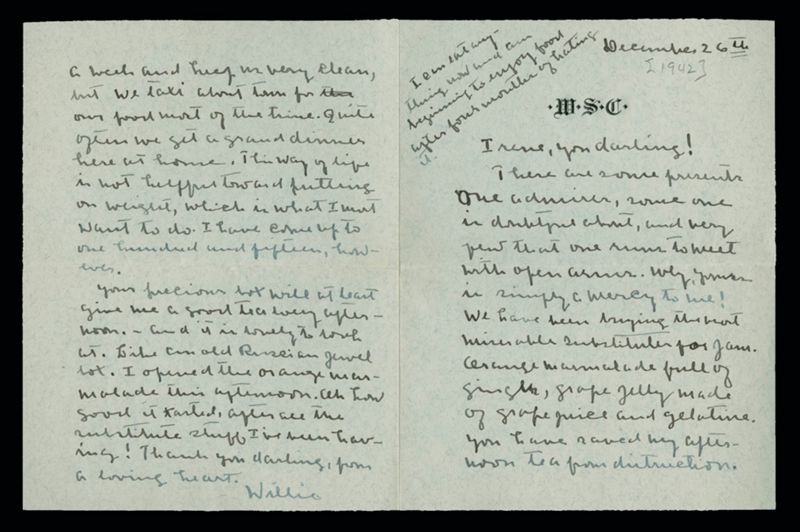 December 26th
[1942]
I can eat any-
thing now and am
beginning to enjoy food
after four months of hating
it.
·W·S·C·
Irene, you darling!
There are some presents
one admires, some one
is doubtful about, and very
few that one runs to meet
with open arms. Why, yours
is simply a mercy to me!
We have been buying the most
miserable substitutes for jam.
Orange marmalade full of
ginger, grape jelly made
of grape juice and gelatine.
You have saved my after-
noon tea from distruction.
a week and keep us very clean,
but we taxi about town for the
our food most of the time. Quite
often we get a grand dinner
here at home. This way of life
is not helpful toward putting
on weight, which is what I most
want to do. I have come up to
one hundred and fifteen, how-
ever.
Your precious box will at least
give me a good tea every after-
noon. - and it is lovely to look
at. Like an old Russian jewel
box. I opened the orange mar-
malade this afternoon. Oh how
good it tasted, after all the
substitute stuff I've been hav-
ing! Thank you darling, from
a loving heart.
Willie